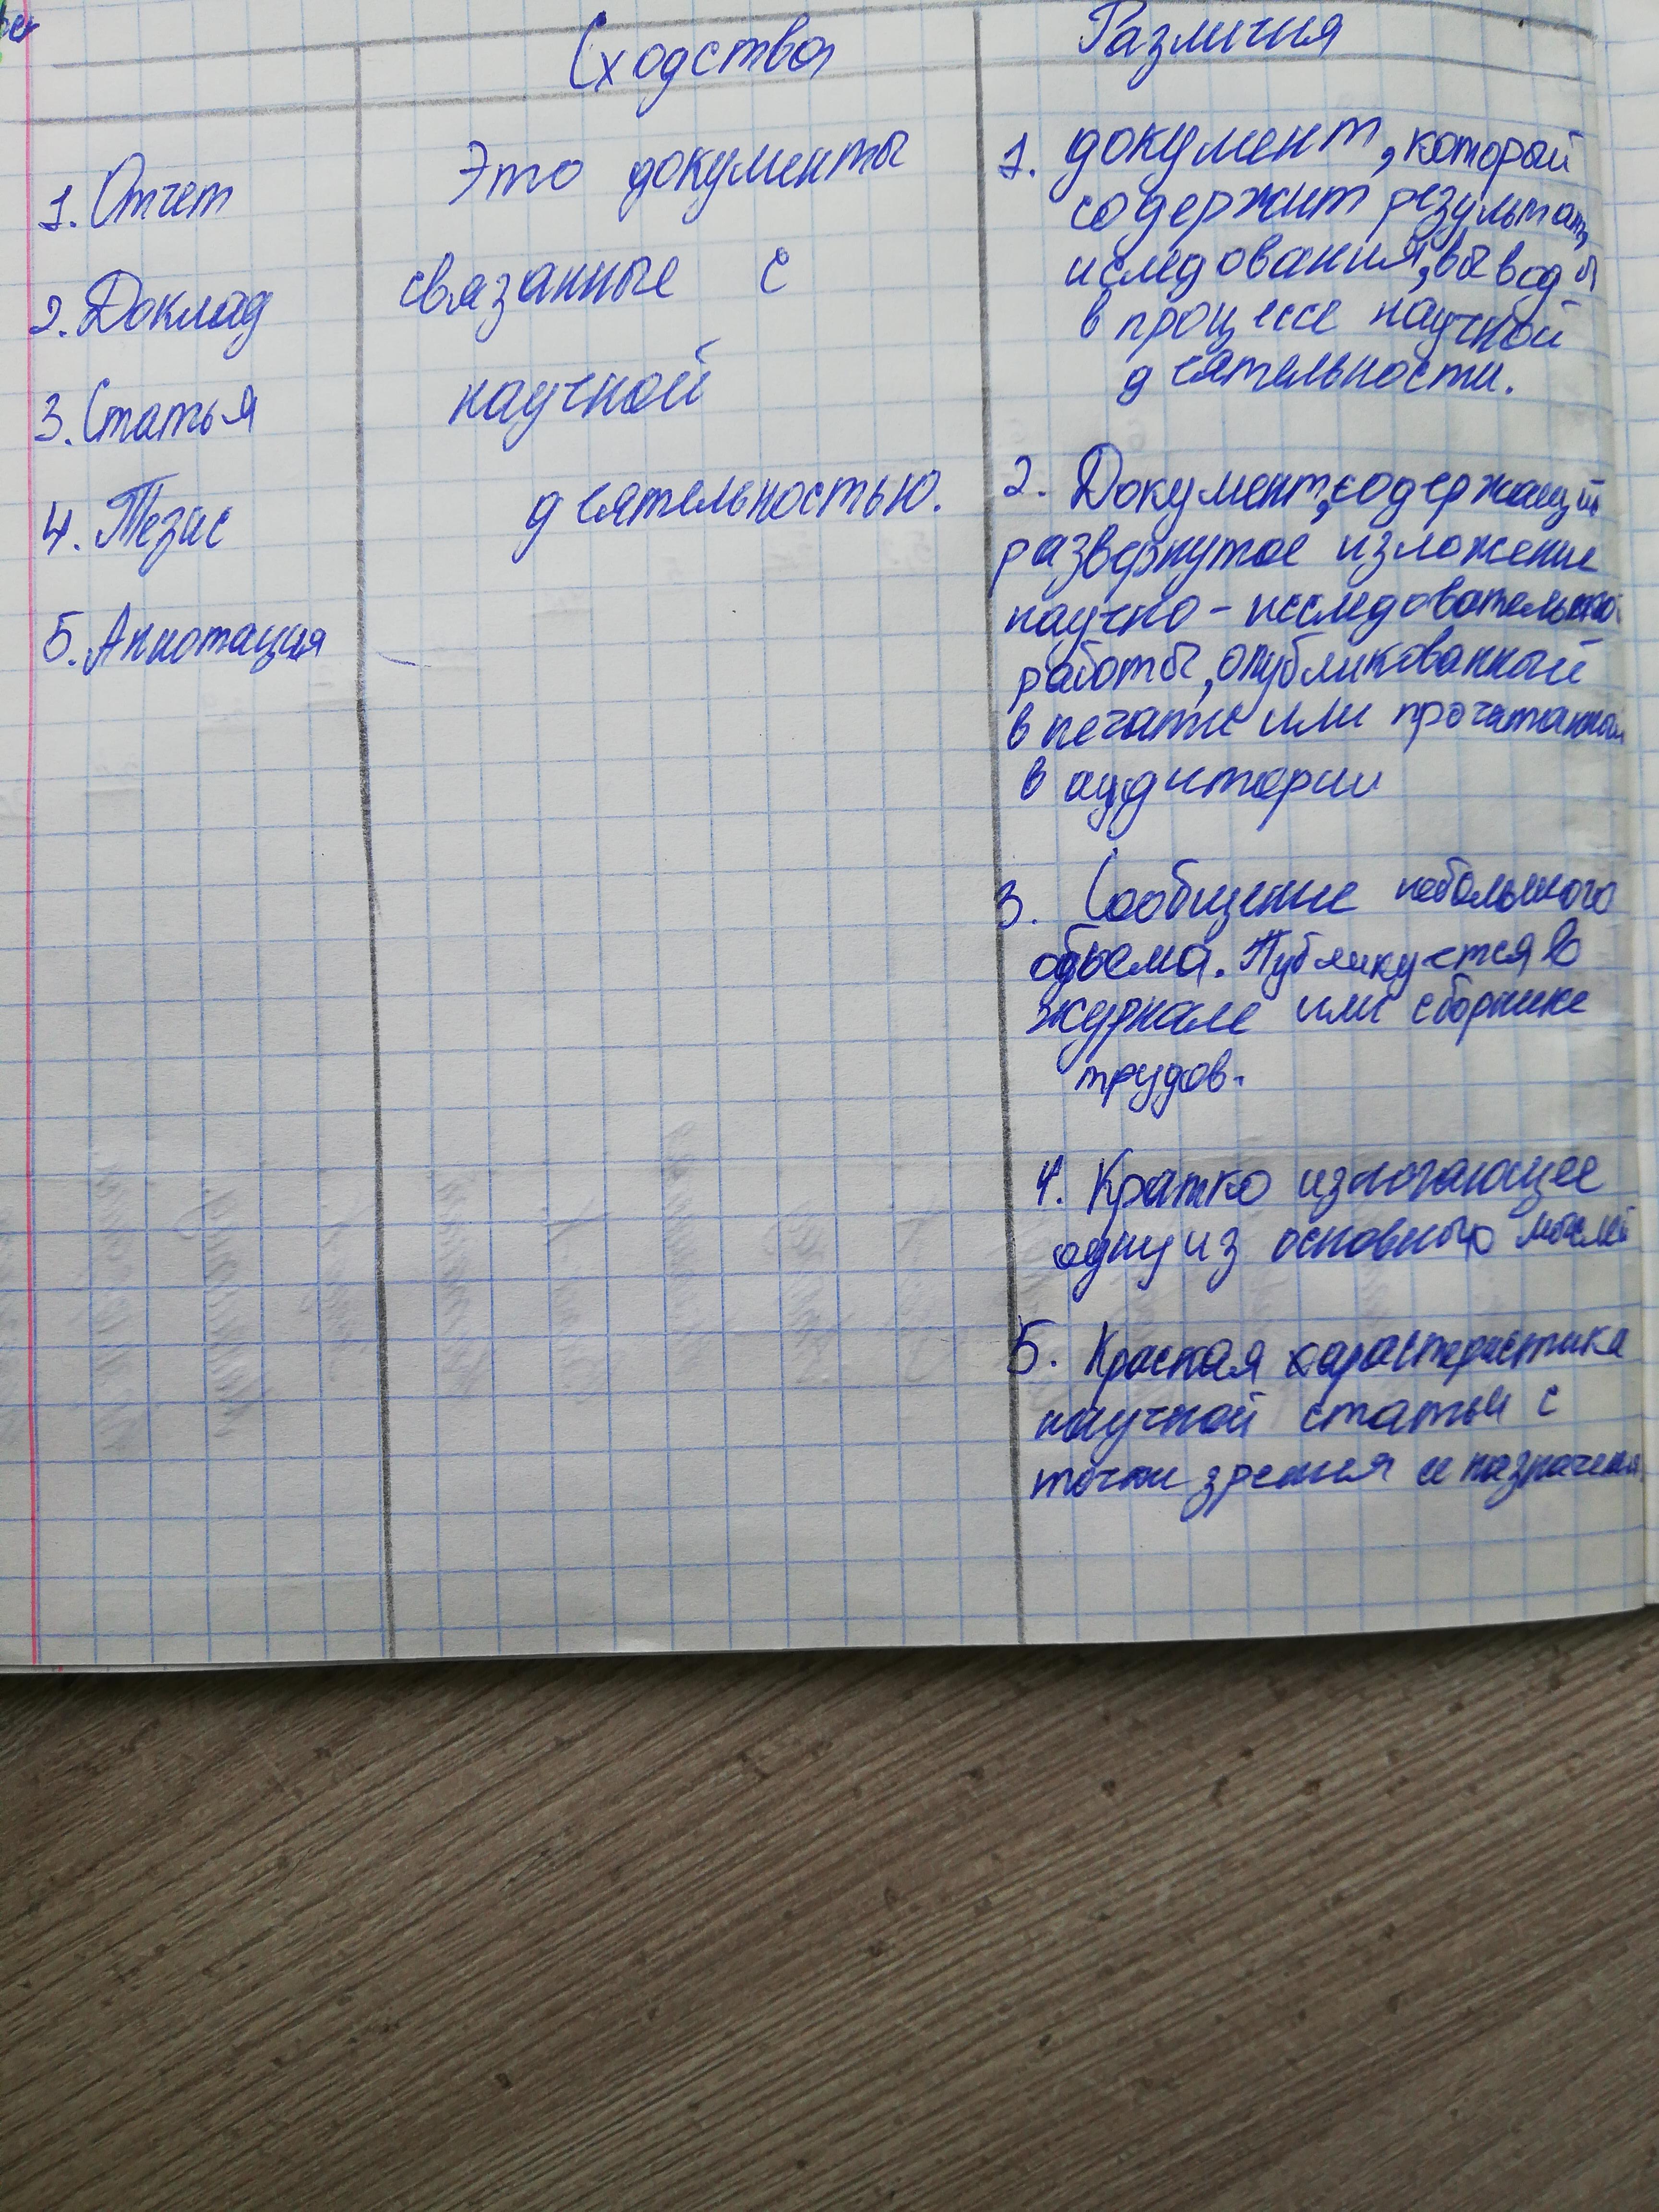 Сходства
Различия
1. Отчет
2. Доклад
3. Статья
4. Тезис
5. Аннотация
Это документы
связанные с
научной
деятельностью.
1. документ, который
содержит результаты
иследования, выводы
в процессе научной
деятельности.
2. Документ, содержащий
развернутое изложение
научно-исследовательской
работы, опубликованный
в печати или прочитанный
в аудитории
3. Сообщение небольшого
объема. Публикуется в
журнале или сборнике
трудов.
4. Кратко излогающее
одну из основных мыслей
5. Краткая характеристика
научной статьи с
точки зрения ее назначения